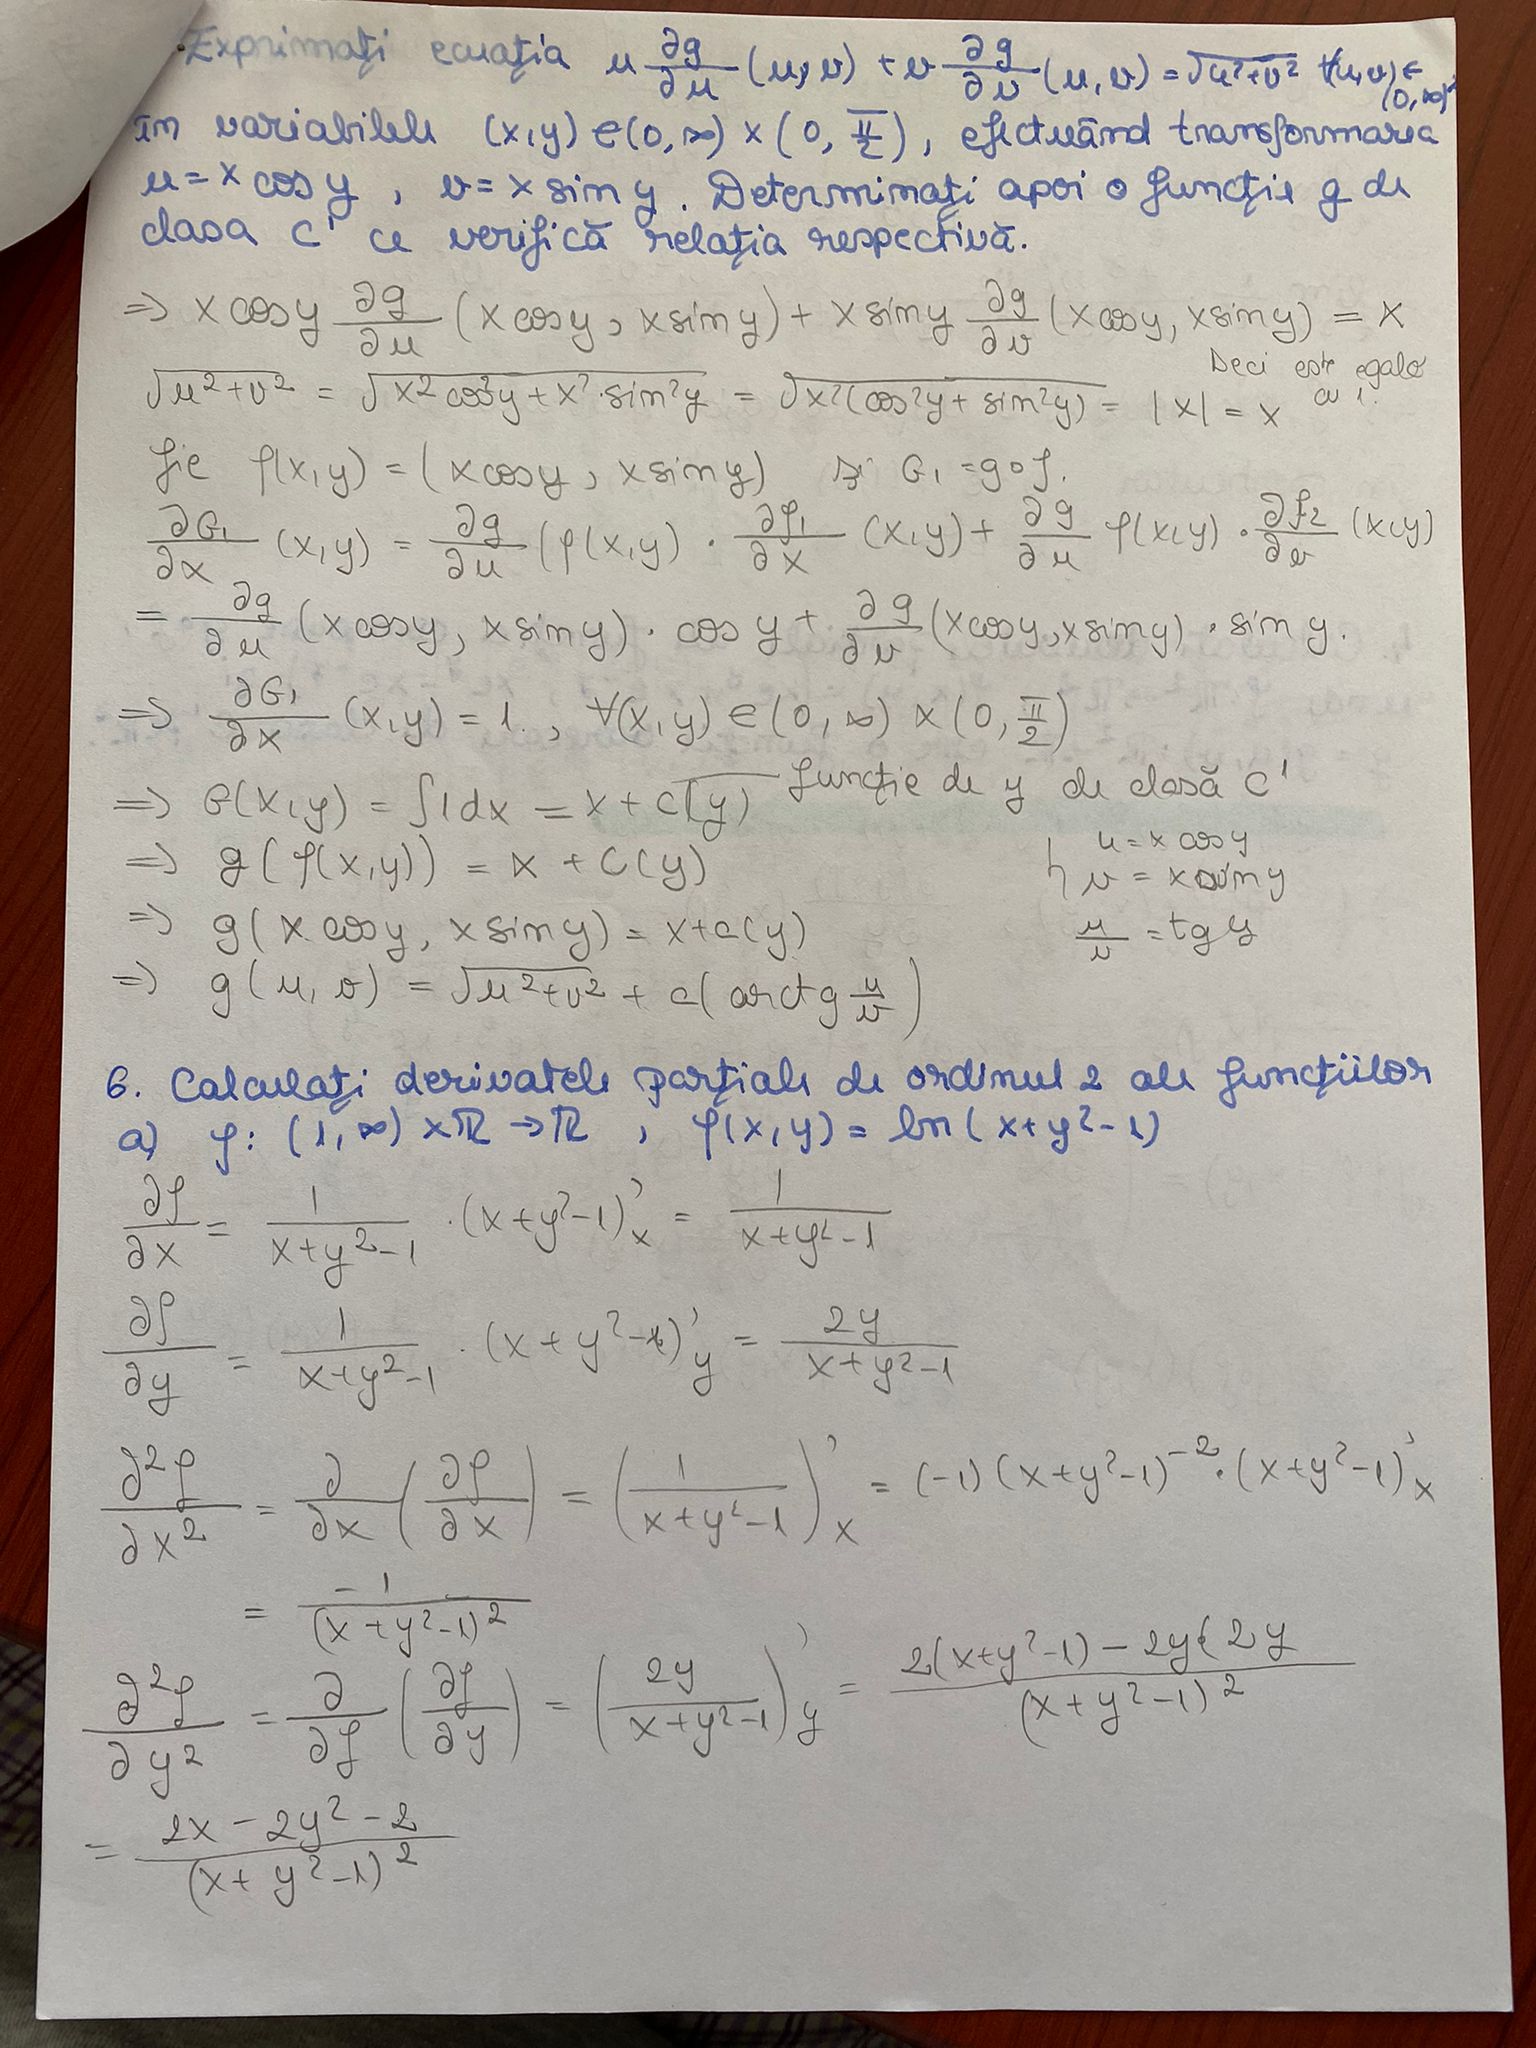 Exprimați ecuația u ∂g/∂u (u,v) + v ∂g/∂v (u,v) = √(u²+v²) ∀(u,v)∈(0,∞)²
în variabilele (x,y) ∈ (0,∞) × (0, π/2), efectuând transformarea
u = x cos y , v = x sin y. Determinați apoi o funcție g de
clasa C¹ ce verifică relația respectivă.
=> x cos y ∂g/∂u (x cos y, x sin y) + x sin y ∂g/∂v (x cos y, x sin y) = x
Deci este egală cu 1.
√(u²+v²) = √(x² cos²y + x² · sin²y) = √(x²(cos²y + sin²y)) = |x| = x
fie f(x,y) = (x cos y, x sin y) și G₁ = g∘f.
∂G₁/∂x (x,y) = ∂g/∂u (f(x,y) · ∂f₁/∂x (x,y) + ∂g/∂u f(x,y) · ∂f₂/∂v (x,y)
= ∂g/∂u (x cos y, x sin y) · cos y + ∂g/∂v (x cos y, x sin y) · sin y.
=> ∂G₁/∂x (x,y) = 1. , ∀(x,y) ∈ (0,∞) × (0, π/2)
=> G(x,y) = ∫1dx = x + C(y) funcție de y de clasă C¹
=> g(f(x,y)) = x + C(y)
u = x cos y
v = x sin y
=> g(x cos y, x sin y) = x + c(y)
u/v = tg y
=> g(u,v) = √(u²+v²) + c(arctg u/v)
6. Calculați derivatele parțiale de ordinul 2 ale funcțiilor
a) f: (1,∞) × ℝ → ℝ , f(x,y) = ln(x+y²-1)
∂f/∂x = 1/(x+y²-1) · (x+y²-1)'ₓ = 1/(x+y²-1)
∂f/∂y = 1/(x+y²-1) · (x+y²-1)'y = 2y/(x+y²-1)
∂²f/∂x² = ∂/∂x (∂f/∂x) = (1/(x+y²-1))'ₓ = (-1)(x+y²-1)⁻² · (x+y²-1)'ₓ
= -1/(x+y²-1)²
∂²f/∂y² = ∂/∂f (∂f/∂y) = (2y/(x+y²-1))'y = 2(x+y²-1) - 2y(2y/(x+y²-1)²
= 2x-2y²-2/(x+y²-1)²